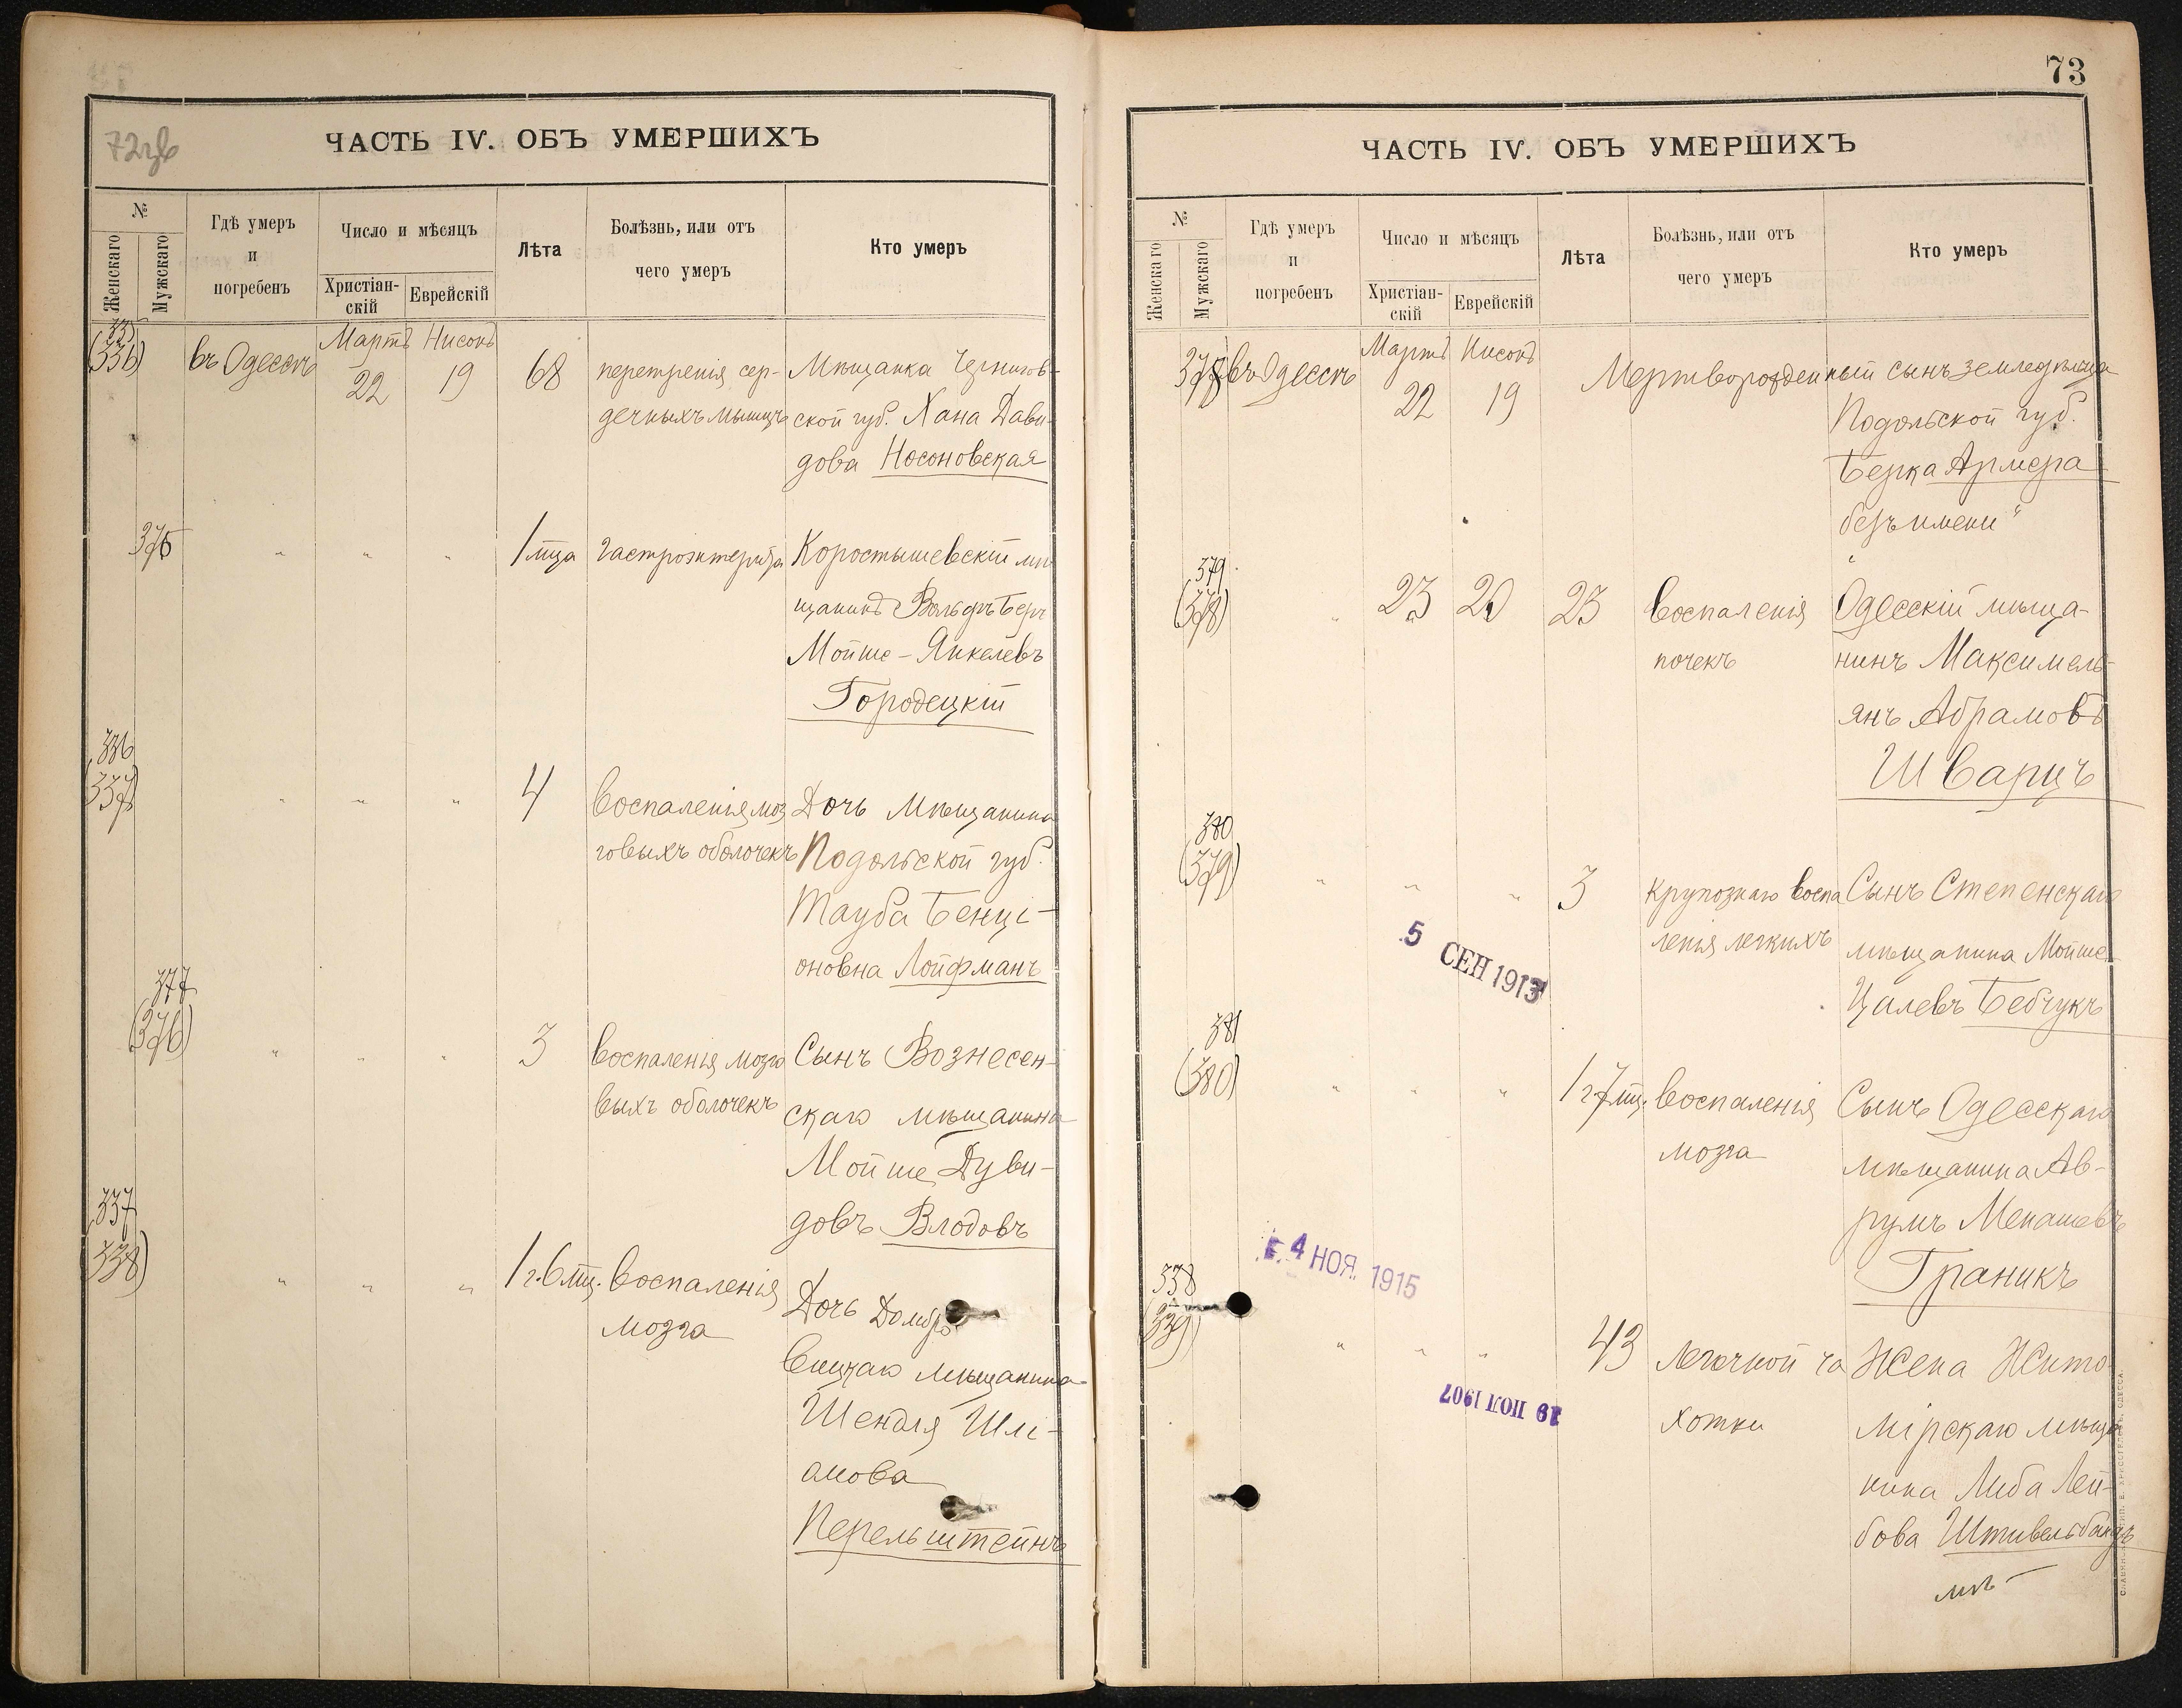 72зв
ЧАСТЬ IV. ОБЪ УМЕРШИХЪ
№
Женскаго
Мужскаго
Гдѣ умеръ
и
погребенъ
Число и мѣсяцъ
Христіан-
скій
Еврейскій
Лѣта
Болѣзнь, или отъ
чего умеръ
Кто умеръ
335
(336)
въ Одессѣ
Мартъ
22
Нисонъ
19
68
перетренія сер-
дечныхъ мышцъ
Мѣщанка Чернигов-
ской губ. Хана Дави-
дова Носоновская
376
" " "
1 мца
гастроэнтерита
Коростышевскій мѣ
щанинъ Вольфъ Беръ
Мойше-Янкелевъ
Городецкій
336
(337)
" " "
4
воспаленія моз
говыхъ оболочекъ
Дочь Мѣщанина
Подольской губ.
Тауба Бенці-
оновна Лойфманъ
377
(376)
" " "
3
воспаленія мозго
выхъ оболочекъ
Сынъ Вознесен-
скаго мѣщанина
Мойше Дуви-
довъ Влодовъ
337
(338)
" " "
1 г. 6 мц.
воспаленія
мозга
Дочь Домбро
вицкаго мѣщанина
Шендля Шлі-
омова
Перельштейнъ
73
ЧАСТЬ IV. ОБЪ УМЕРШИХЪ
№
Женскаго
Мужскаго
Гдѣ умеръ
и
погребенъ
Число и мѣсяцъ
Христіан-
скій
Еврейскій
Лѣта
Болѣзнь, или отъ
чего умеръ
Кто умеръ
378
въ Одессѣ
Мартъ
22
Нисонъ
19
Мертворожденный сынъ земледѣльца
Подольской губ.
Берка Армера
безъ имени"
379
(378)
"
23
20
23
воспаленія
почекъ
Одесскій мѣща-
нинъ Максимель-
янъ Абрамовъ
Шварцъ
380
(379)
" " "
3
крупознаго воспа
ленія легкихъ
Сынъ Степенскаго
мѣщанина Мойше-
Цалевъ Бебчукъ
5 СЕН 1913
381
(380)
" " "
1 г 7 мц.
воспаленія
мозга
Сынъ Одесскаго
мѣщанина Ав-
румъ Менашевъ
Граникъ
4 НОЯ. 1915
338
(339)
" " "
43
легочной ча
хотки
Жена Жито
мірскаго мѣща
нина Либа Лей-
бова Штивельбандъ
19 ІЮЛ 1907